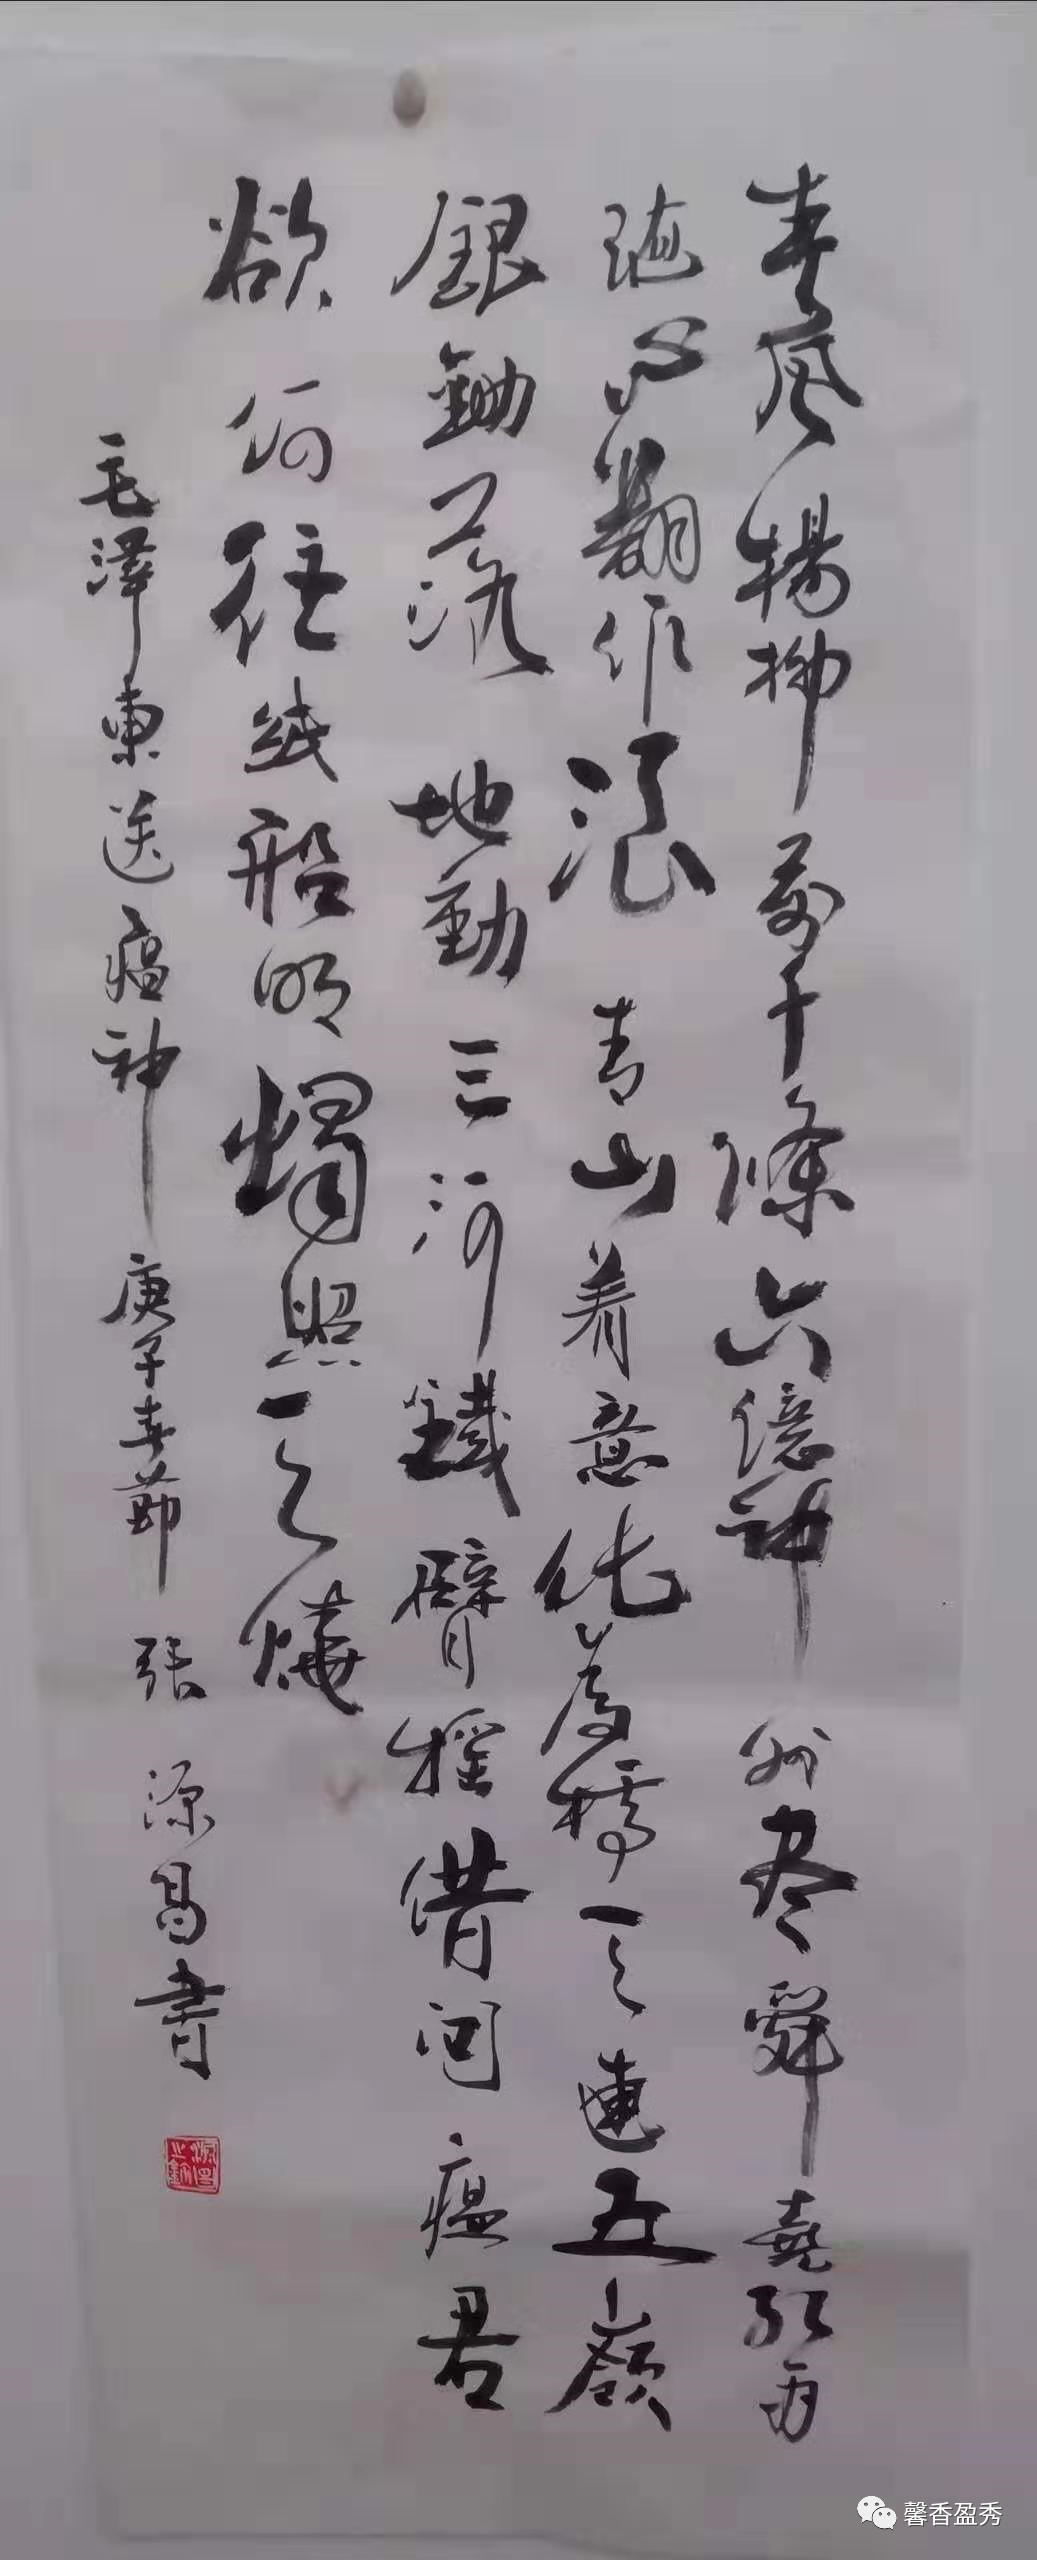 春風楊柳萬千條六億神州盡舜堯紅雨
隨心翻作浪青山着意化為橋天連五嶺
銀鋤落地動三河鐵臂搖借問瘟君
欲何往紙船明燭照天燒
毛澤東送瘟神庚子春節張源昌書
馨香盈秀